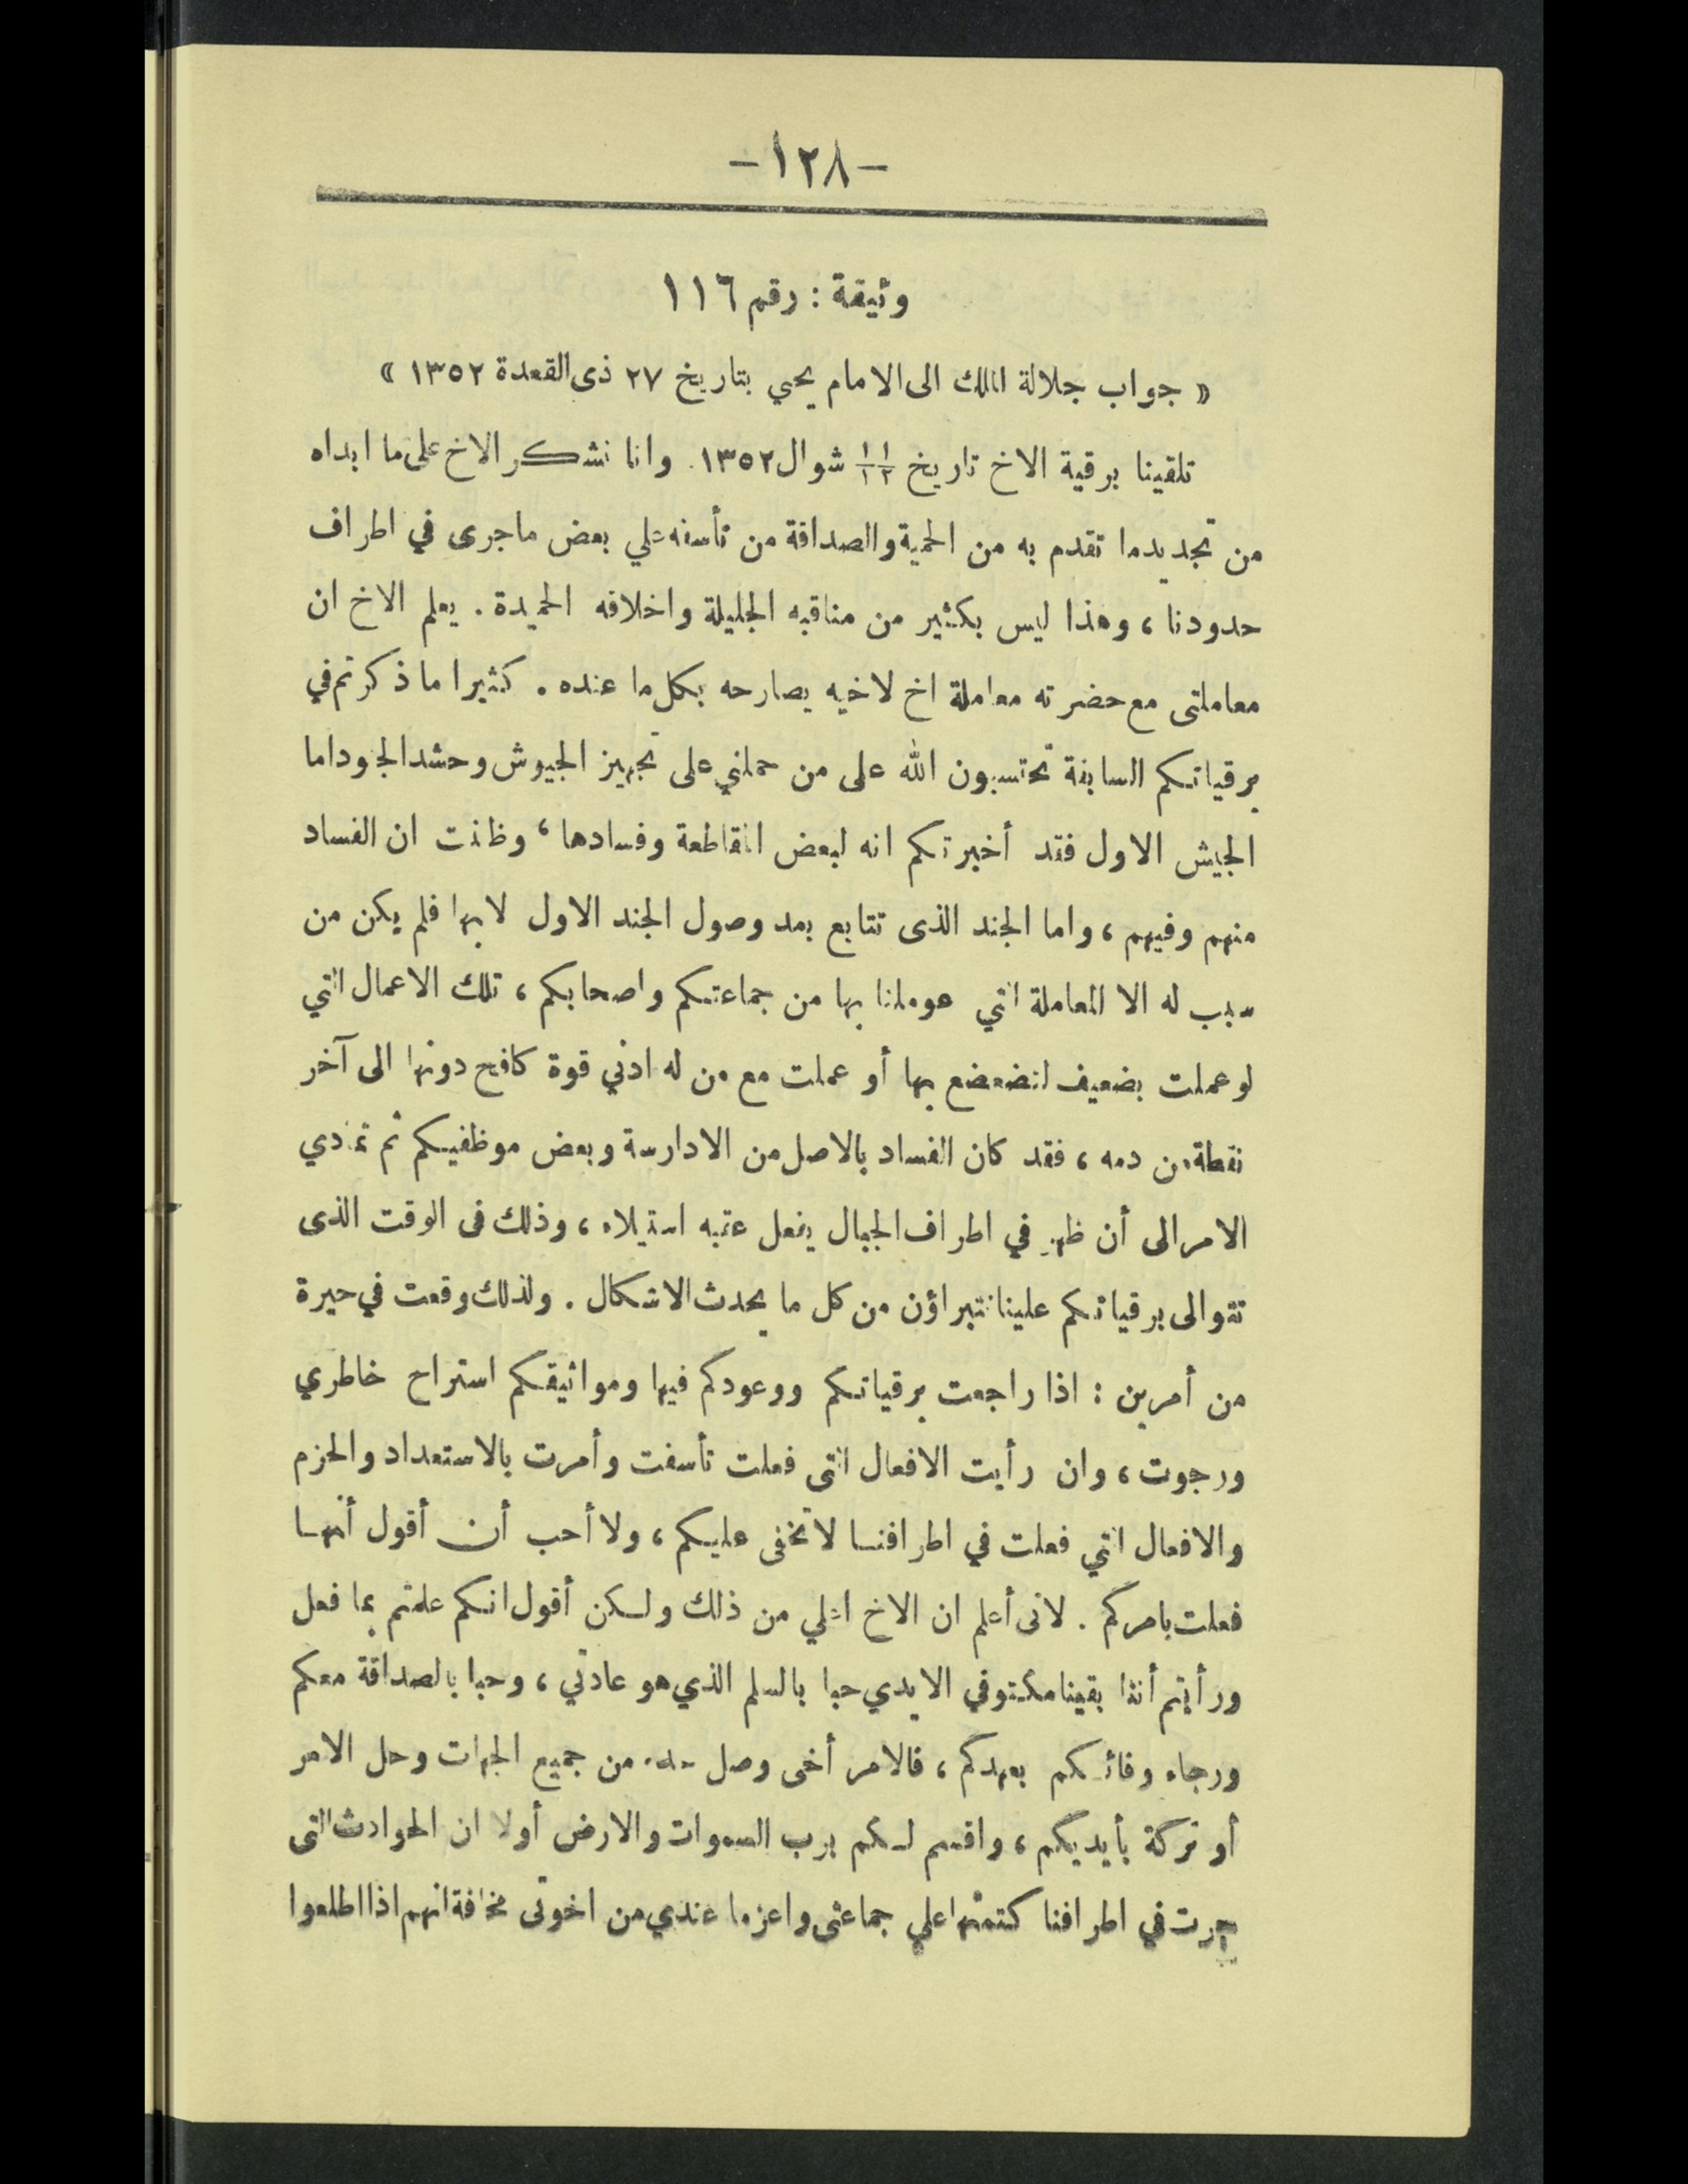 -١٢٨-
وثيقة : رقم ١١٦
« جواب جلالة الملك الى الامام يحيي بتاريخ ٢٧ ذى القعدة ١٣٥٢ »
تلقينا برقية الاخ تاريخ شوال ١٣٥٢. وانا نشكر الاخ على ما ابداه
من تجديد ما تقدم به من الحمية والصداقة من تأسفه علي بعض ما جرى في اطراف
حدودنا ، وهذا ليس بكثير من مناقبه الجليلة واخلاقه الحميدة . يعلم الاخ ان
معاملتى مع حضرته معاملة اخ لاخيه يصارحه بكل ما عنده . كثيرا ما ذكرتم في
برقياتكم السابقة تحتسبون الله على من حملني على تجهيز الجيوش وحشد الجنود اما
الجيش الاول فقد أخبرتكم انه لبعض المقاطعة وفسادها ، وظننت ان الفساد
منهم وفيهم ، واما الجند الذى تتابع بعد وصول الجند الاول لابها فلم يكن من
سبب له الا المعاملة التي عوملنا بها من جماعتكم واصحابكم ، تلك الاعمال التي
لو عملت بضعيف لتضعضع بها أو عملت مع من له ادني قوة كافح دونها الى آخر
نقطة من دمه ، فقد كان الفساد بالاصل من الادارسة وبعض موظفيكم ثم تمادي
الامر الى أن ظهر في اطراف الجبال بفعل عقبه استيلاء ، وذلك فى الوقت الذى
تتوالى برقياتكم علينا تتبراؤن من كل ما يحدث الاشكال . ولذلك وقعت في حيرة
من أمرين : اذا راجعت برقياتكم ووعودكم فيها ومواثيقكم استراح خاطري
ورجوت ، وان رأيت الافعال التى فعلت تأسفت وأمرت بالاستعداد والحزم
والافعال التي فعلت في اطرافنا لا تخفى عليكم ، ولا أحب أن أقول أنها
فعلت بامركم . لانى أعلم ان الاخ اعلي من ذلك ولكن أقول انكم علمتم بما فعل
ورأيتم أننا بقينا مكتوفي الايدي حبا بالسلم الذي هو عادتي ، وحبا بالصداقة معكم
ورجاء وفائكم بعهدكم ، فالامر أخى وصل حده من جميع الجهات وحل الامر
أو تركة بأيديكم ، واقسم لكم برب السموات والارض أولا ان الحوادث التى
جرت في اطرافنا كتمتها علي جماعتى واعز ما عندي من اخوتى مخافة انهم اذا اطلعوا